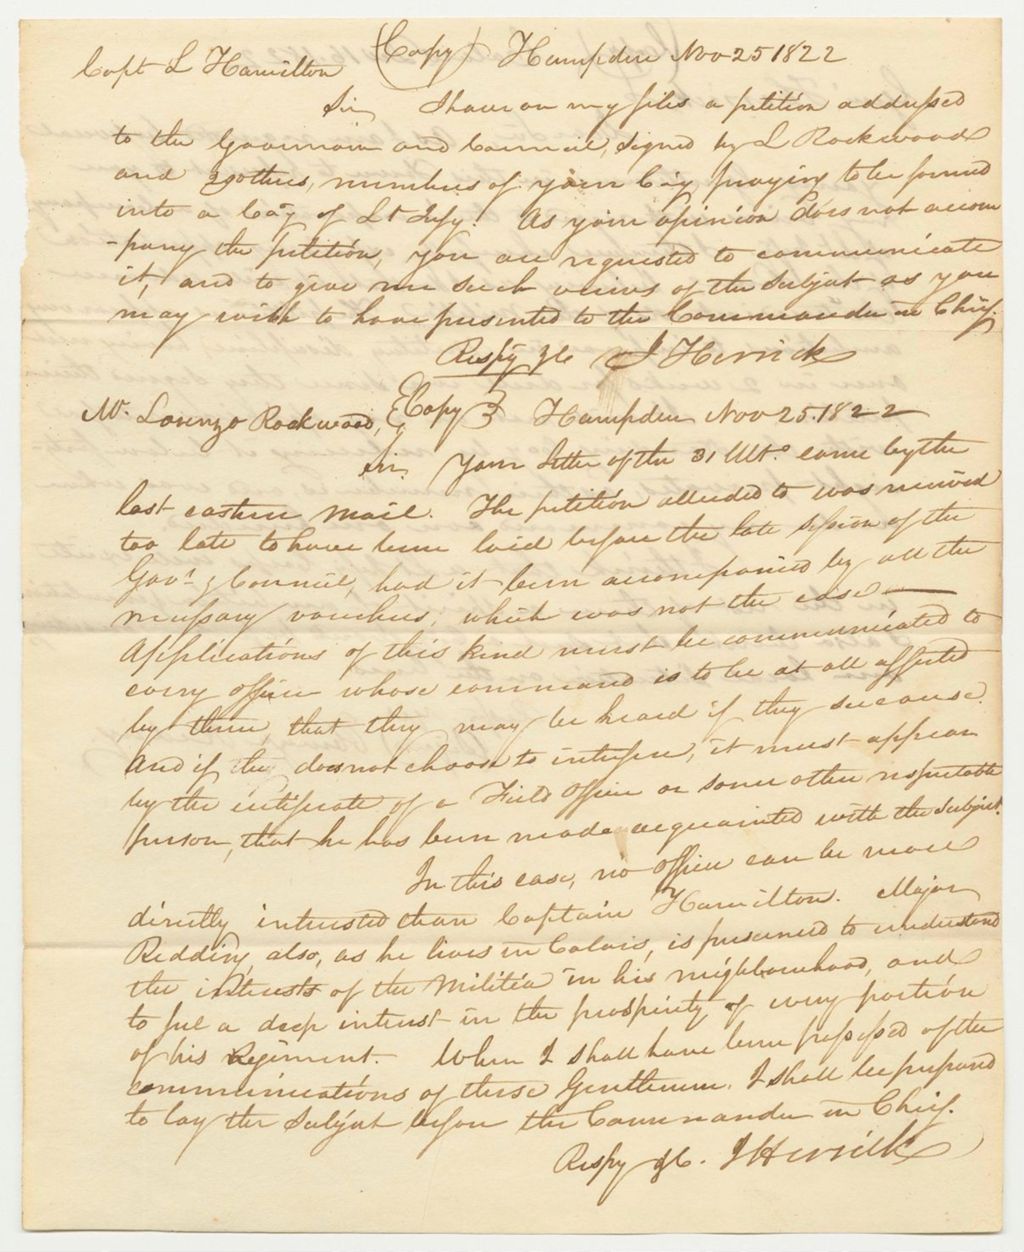 (Copy) Hampden Nov 25 1822
Capt L Hamilton
Sir, I have on my files a petition addressed
to the Governor and Council, signed by L Rockwood
and others, members of your Coy, praying to be formed
into a Coy of Lt Infy. As your opinion does not accom
-pany the petition, you are requested to communicate
it, and to give me such views of the subject as you
may wish to have presented to the Commander in Chief.
Respy &c J Herrick
Mr. Lorenzo Rockwood, (Copy) Hampden Nov 25. 1822
Sir, Your letter of the 31 Ulto. came by the
last eastern mail. The petition alluded to was received
too late to have been laid before the late session of the
Govr. & Council, had it been accompanied by all the
necessary vouchers, which was not the case —
Applications of this kind must be communicated to
every officer whose command is to be at all affected
by them, that they may be heard if they see cause.
And if they does not choose to interfere, it must appear
by the certificate of a Field officer or some other respectable
person, that he has been made acquainted with the subject.
In this case, no officer can be more
directly interested than Captain Hamilton. Major
Redding, also, as he lives in Calais, is presumed to understand
the interests of the Militia in his neighbourhood, and
to feel a deep interest in the prosperity of every portion
of his Regiment. When I shall have been possessed of the
communications of these Gentlemen, I shall be prepared
to lay the subject before the Commander in Chief.
Respy &c. J Herrick